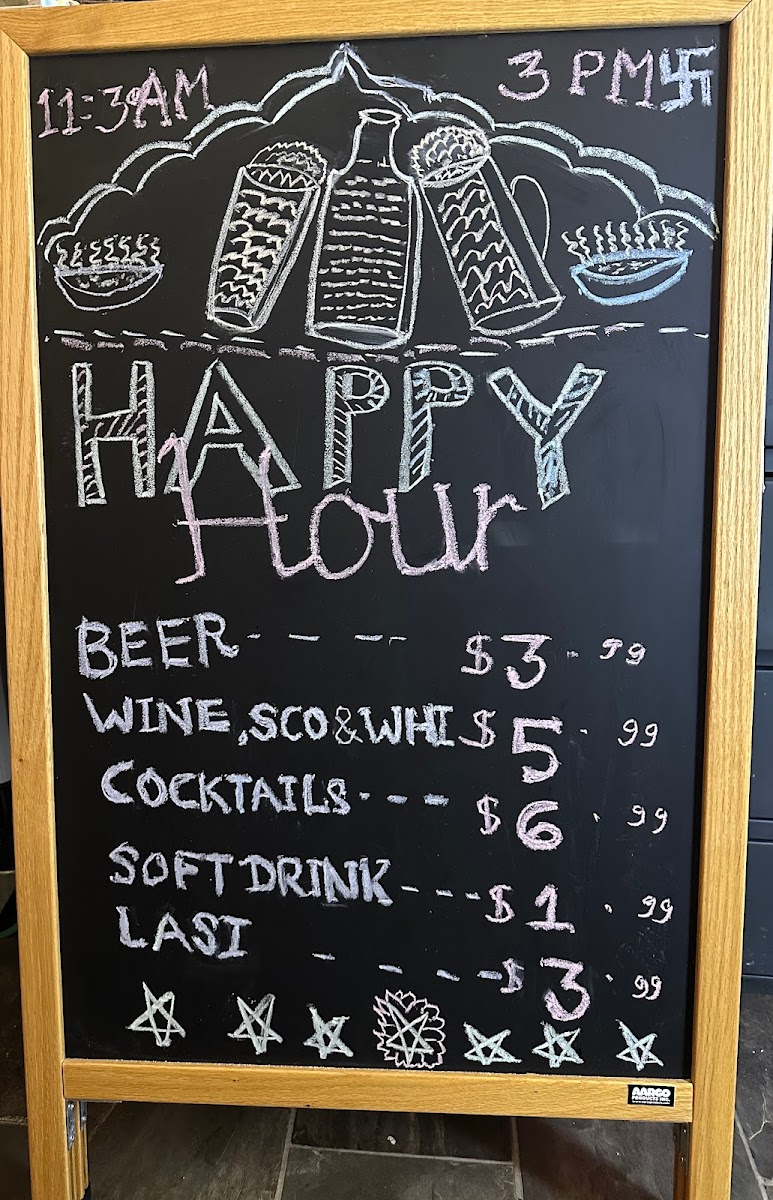 11:30AM
3 PM卐
HAPPY
Hour
BEER - - - - $3.99
WINE,SCO&WHI $5.99
COCKTAILS - - - $6.99
SOFT DRINK - - - $1.99
LASI - - - - $3.99
AARCO
PRODUCTS INC.